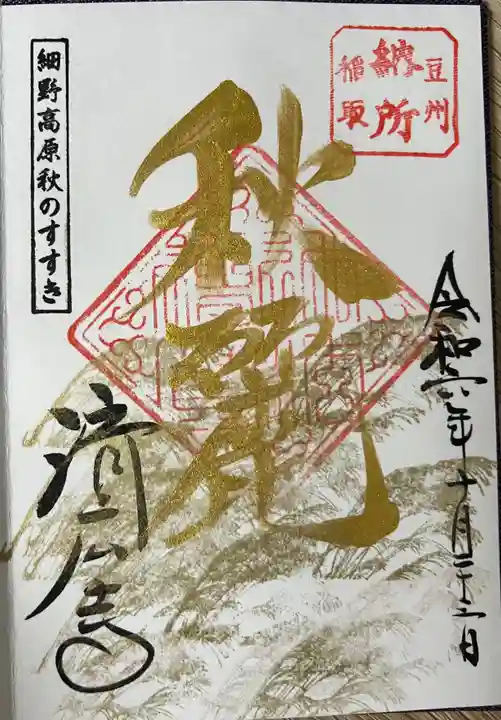 豆州
納所
稲取
令和六年十月二十日
秋麗
細野高原秋のすすき
済広寺